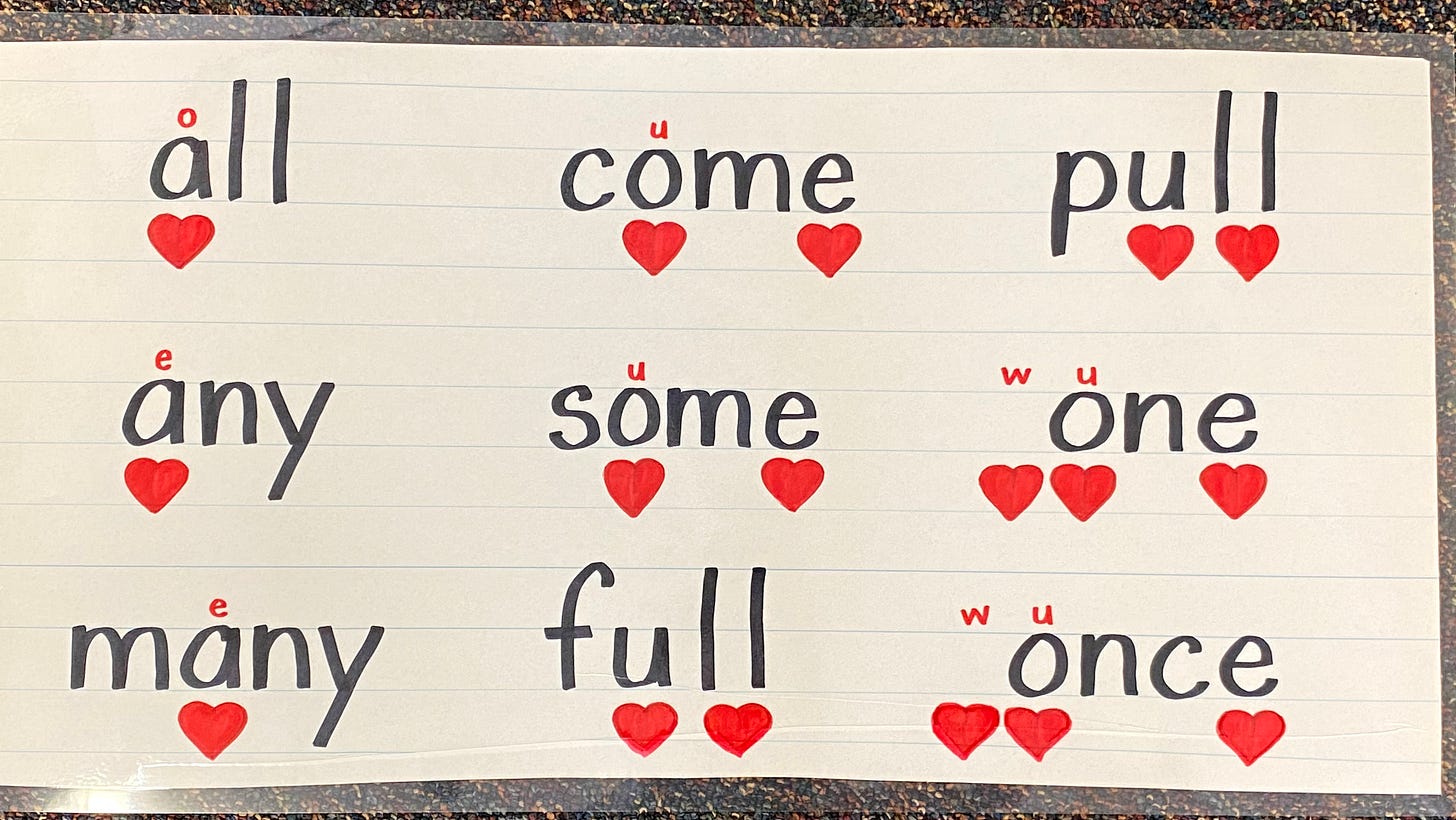 o
all
u
come
pull
e
any
u
some
w u
one
e
many
full
w u
once